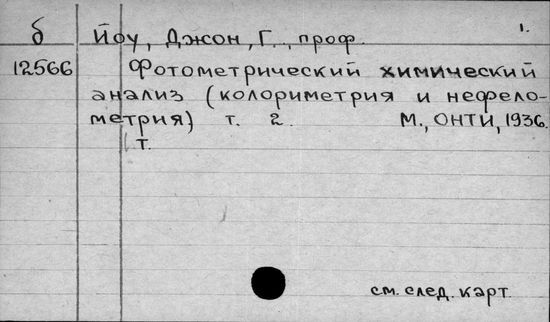 б Йоу, Джон, Г., проф. 1.
12566 Фотометрический химический
анализ (колориметрия и нефело-
метрия) т. 2. М., ОНТИ, 1936.
1 т.
см. след. карт.